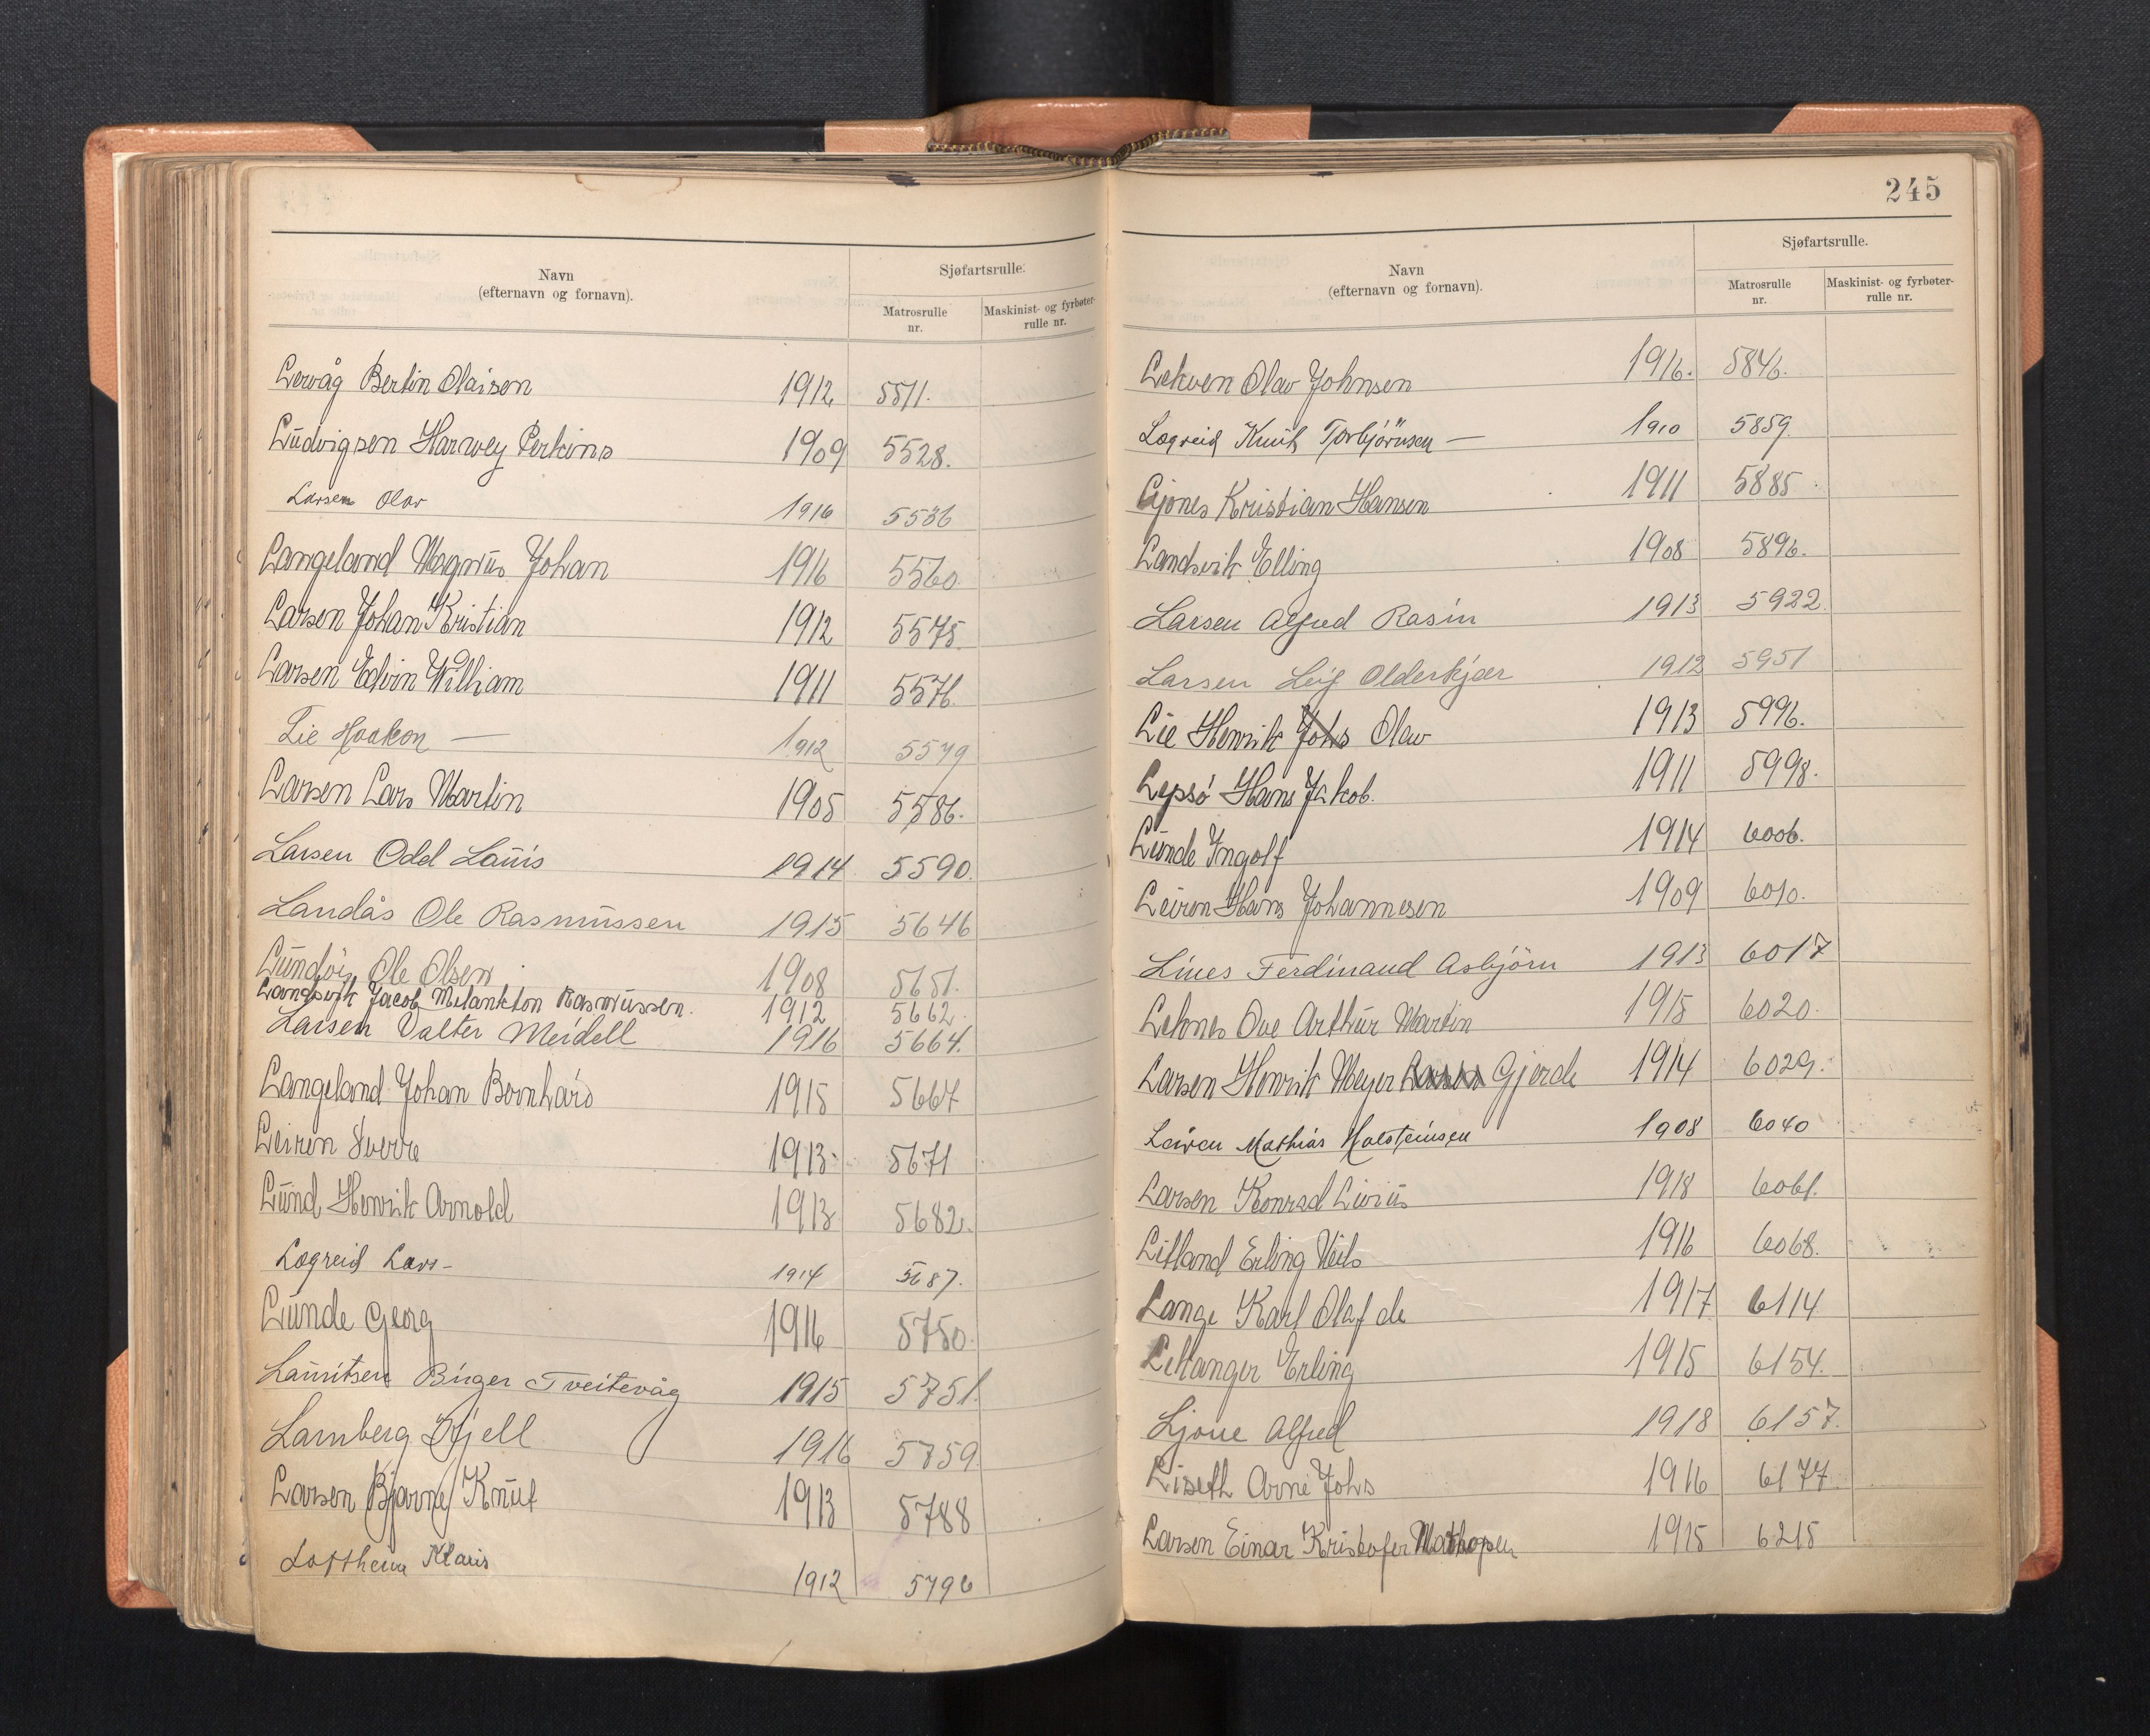 Navn
(efternavn og fornavn).
Sjøfartsrulle.
Matrosrulle
nr.
Maskinist- og fyrbøter-
rulle nr.
Lervåg Bertin Olaisen 1912 5511.
Ludvigsen Harwey Perkins 1909 5528.
Larsen Olav 1916 5536
Langeland Magnus Johan 1916 5560.
Larsen Johan Kristian 1912 5575.
Larsen Edvin William 1911 5576.
Lie Haakon — 1912 5579
Larsen Lars Martin 1905 5586.
Larsen Odd Lauis 1914 5590.
Landås Ole Rasmussen 1915 5646
Lundöy Ole Olsen 1908 5651.
Landsvik Jacob Melankton Rasmussen. 1912 5662.
Larsen Valter Meidell 1916 5664.
Langeland Johan Bernhard 1915 5667
Leiren Sverre 1913 5671
Lund Henrik Arnold 1913 5682.
Lægreid Lars — 1914 5687.
Lunde Georg 1916 5750.
Lauritsen Birger Tveitevåg 1915 5751.
Lamberg Kjell 1916 5759
Larsen Bjarne Knut 1913 5788
Loftheim Klaus 1912 5796
245
Navn
(efternavn og fornavn).
Sjøfartsrulle.
Matrosrulle
nr.
Maskinist- og fyrbøter-
rulle nr.
Lekven Olav Johnsen 1916. 5846.
Lægreid Knut Torbjörnsen — 1910 5859.
Ljones Kristian Hansen 1911 5885
Landsvik Elling 1908 5896.
Larsen Alfred Rasin 1913 5922.
Larsen Leif Olderkjær 1912 5951
Lie Henrik Johs Olav 1913 5996.
Lepsö Hans Jakob. 1911 5998.
Lunde Ingolf 1914 6006.
Leiren Hans Johannesen 1909 6010.
Lines Ferdinand Asbjörn 1913 6017
Leknes Ove Arthur Martin 1915 6020.
Larsen Henrik Meyer Larsen Gjerde 1914 6029.
Leiren Mathias Halsteinsen 1908 6040
Larsen Konrad Livius 1918 6061.
Litland Erling Neils 1916 6068.
Lange Karl Olaf de 1917 6114
Letanger Erling 1915 6154.
Ljone Alfred 1918 6157.
Liseth Arne Johs 1916 6177.
Larsen Einar Kristofer Mathopen 1915 6215